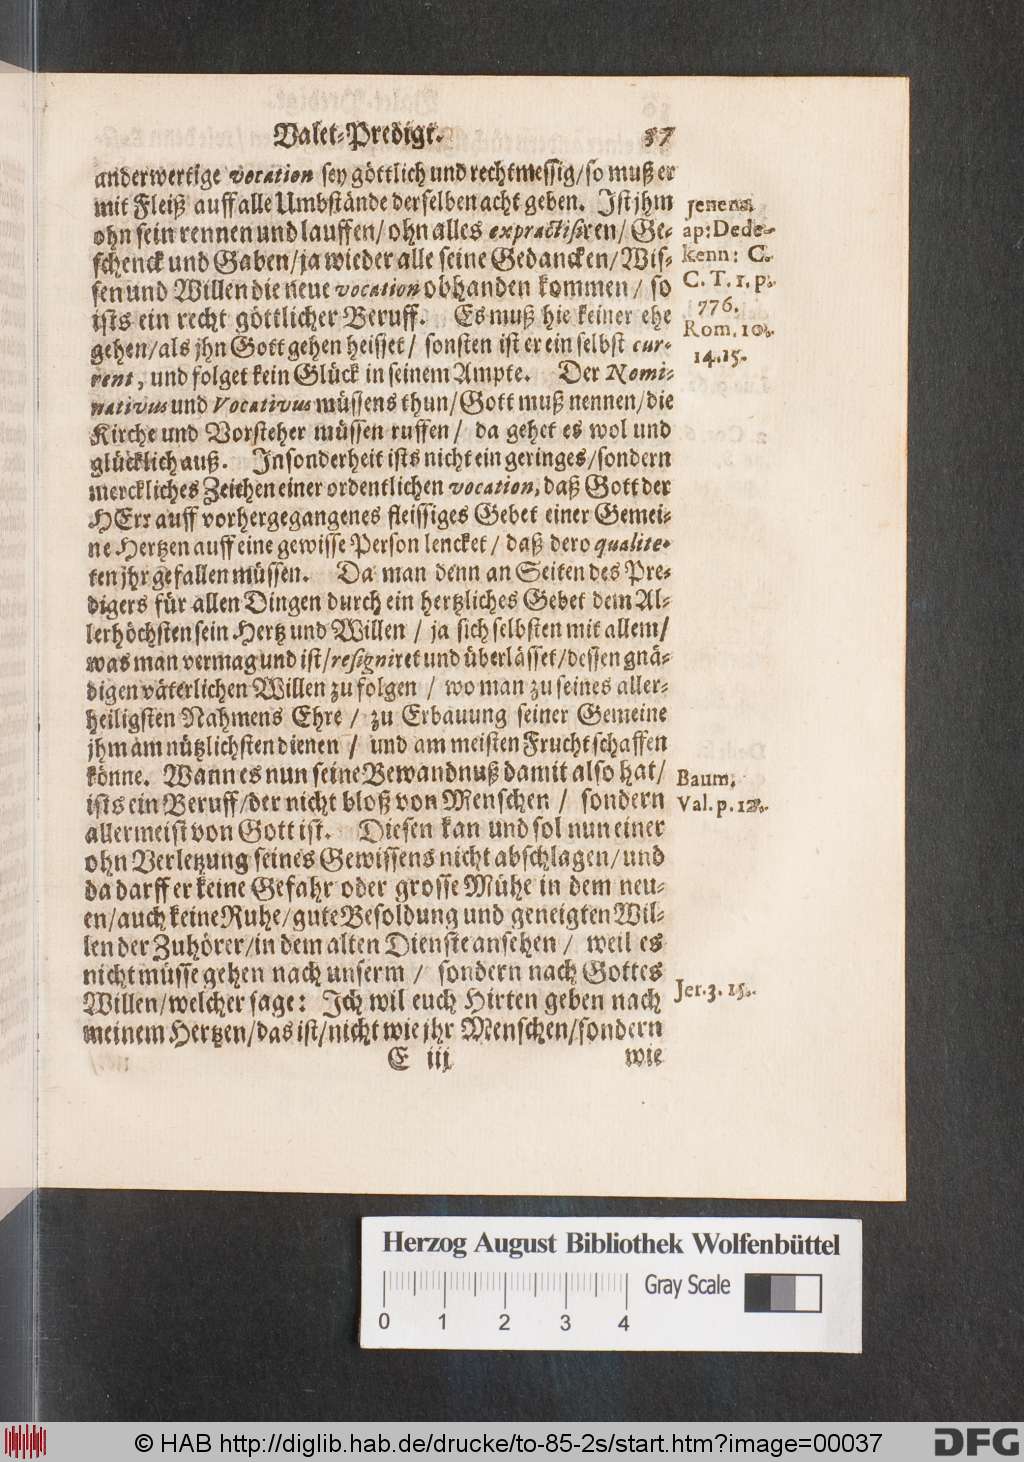 Valet-Predigt. 37
anderwertige vocation sey göttlich und rechtmessig/ so muß er
mit Fleiß auff alle Umbstände derselben acht geben. Ist jhm
ohn sein rennen und lauffen/ ohn alles expractisiren/ Ge-
schenck und Gaben/ ja wieder alle seine Gedancken/ Wis-
sen und Willen die neue vocation obhanden kommen/ so
ists ein recht göttlicher Beruff. Es muß hie keiner ehe
gehen/ als jhn Gott gehen heisset/ sonsten ist er ein selbst cur-
rent, und folget kein Glück in seinem Ampte. Der Nomi-
nativus und Vocativus müssens thun/ Gott muß nennen/ die
Kirche und Vorsteher müssen ruffen/ da gehet es wol und
glücklich auß. Insonderheit ists nicht ein geringes/ sondern
merckliches Zeichen einer ordentlichen vocation, daß Gott der
HErr auff vorhergegangenes fleissiges Gebet einer Gemei-
ne Hertzen auff eine gewisse Person lencket/ daß dero qualite-
ten jhr gefallen müssen. Da man denn an Seiten des Pre-
digers für allen Dingen durch ein hertzliches Gebet dem Al-
lerhöchsten sein Hertz und Willen/ ja sich selbsten mit allem/
was man vermag und ist/ resigniret und überlässet/ dessen gnä-
digen väterlichen Willen zu folgen/ wo man zu seines aller-
heiligsten Nahmens Ehre/ zu Erbauung seiner Gemeine
jhm am nützlichsten dienen/ und am meisten Frucht schaffen
könne. Wann es nun seine Bewandnuß damit also hat/
ists ein Beruff/ der nicht bloß von Menschen/ sondern
allermeist von Gott ist. Diesen kan und sol nun einer
ohn Verletzung seines Gewissens nicht abschlagen/ und
da darff er keine Gefahr oder grosse Mühe in dem neu-
en/ auch keine Ruhe/ gute Besoldung und geneigten Wil-
len der Zuhörer/ in dem alten Dienste ansehen/ weil es
nicht müsse gehen nach unserm/ sondern nach Gottes
Willen/ welcher sage: Ich wil euch Hirten geben nach
meinem Hertzen/ das ist/ nicht wie jhr Menschen/ sondern
E iij wie
Jenens.
ap: Dede-
kenn: C.
C. T. 1. p.
776.
Rom. 10.
14. 15.
Baum.
Val. p. 12.
Jer. 3. 15.
Herzog August Bibliothek Wolfenbüttel
Gray Scale
0 1 2 3 4
© HAB http://diglib.hab.de/drucke/to-85-2s/start.htm?image=00037
DFG